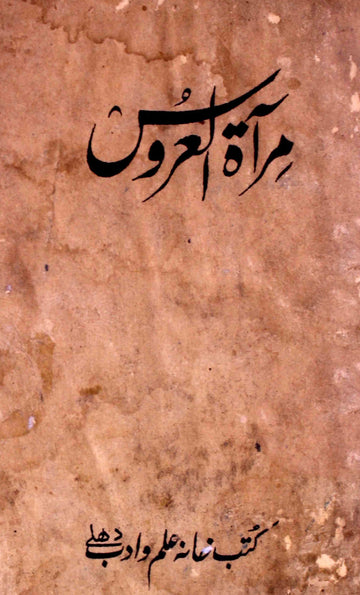 مِرآۃ العروُس
کُتب خانہ علم و ادب دھلے